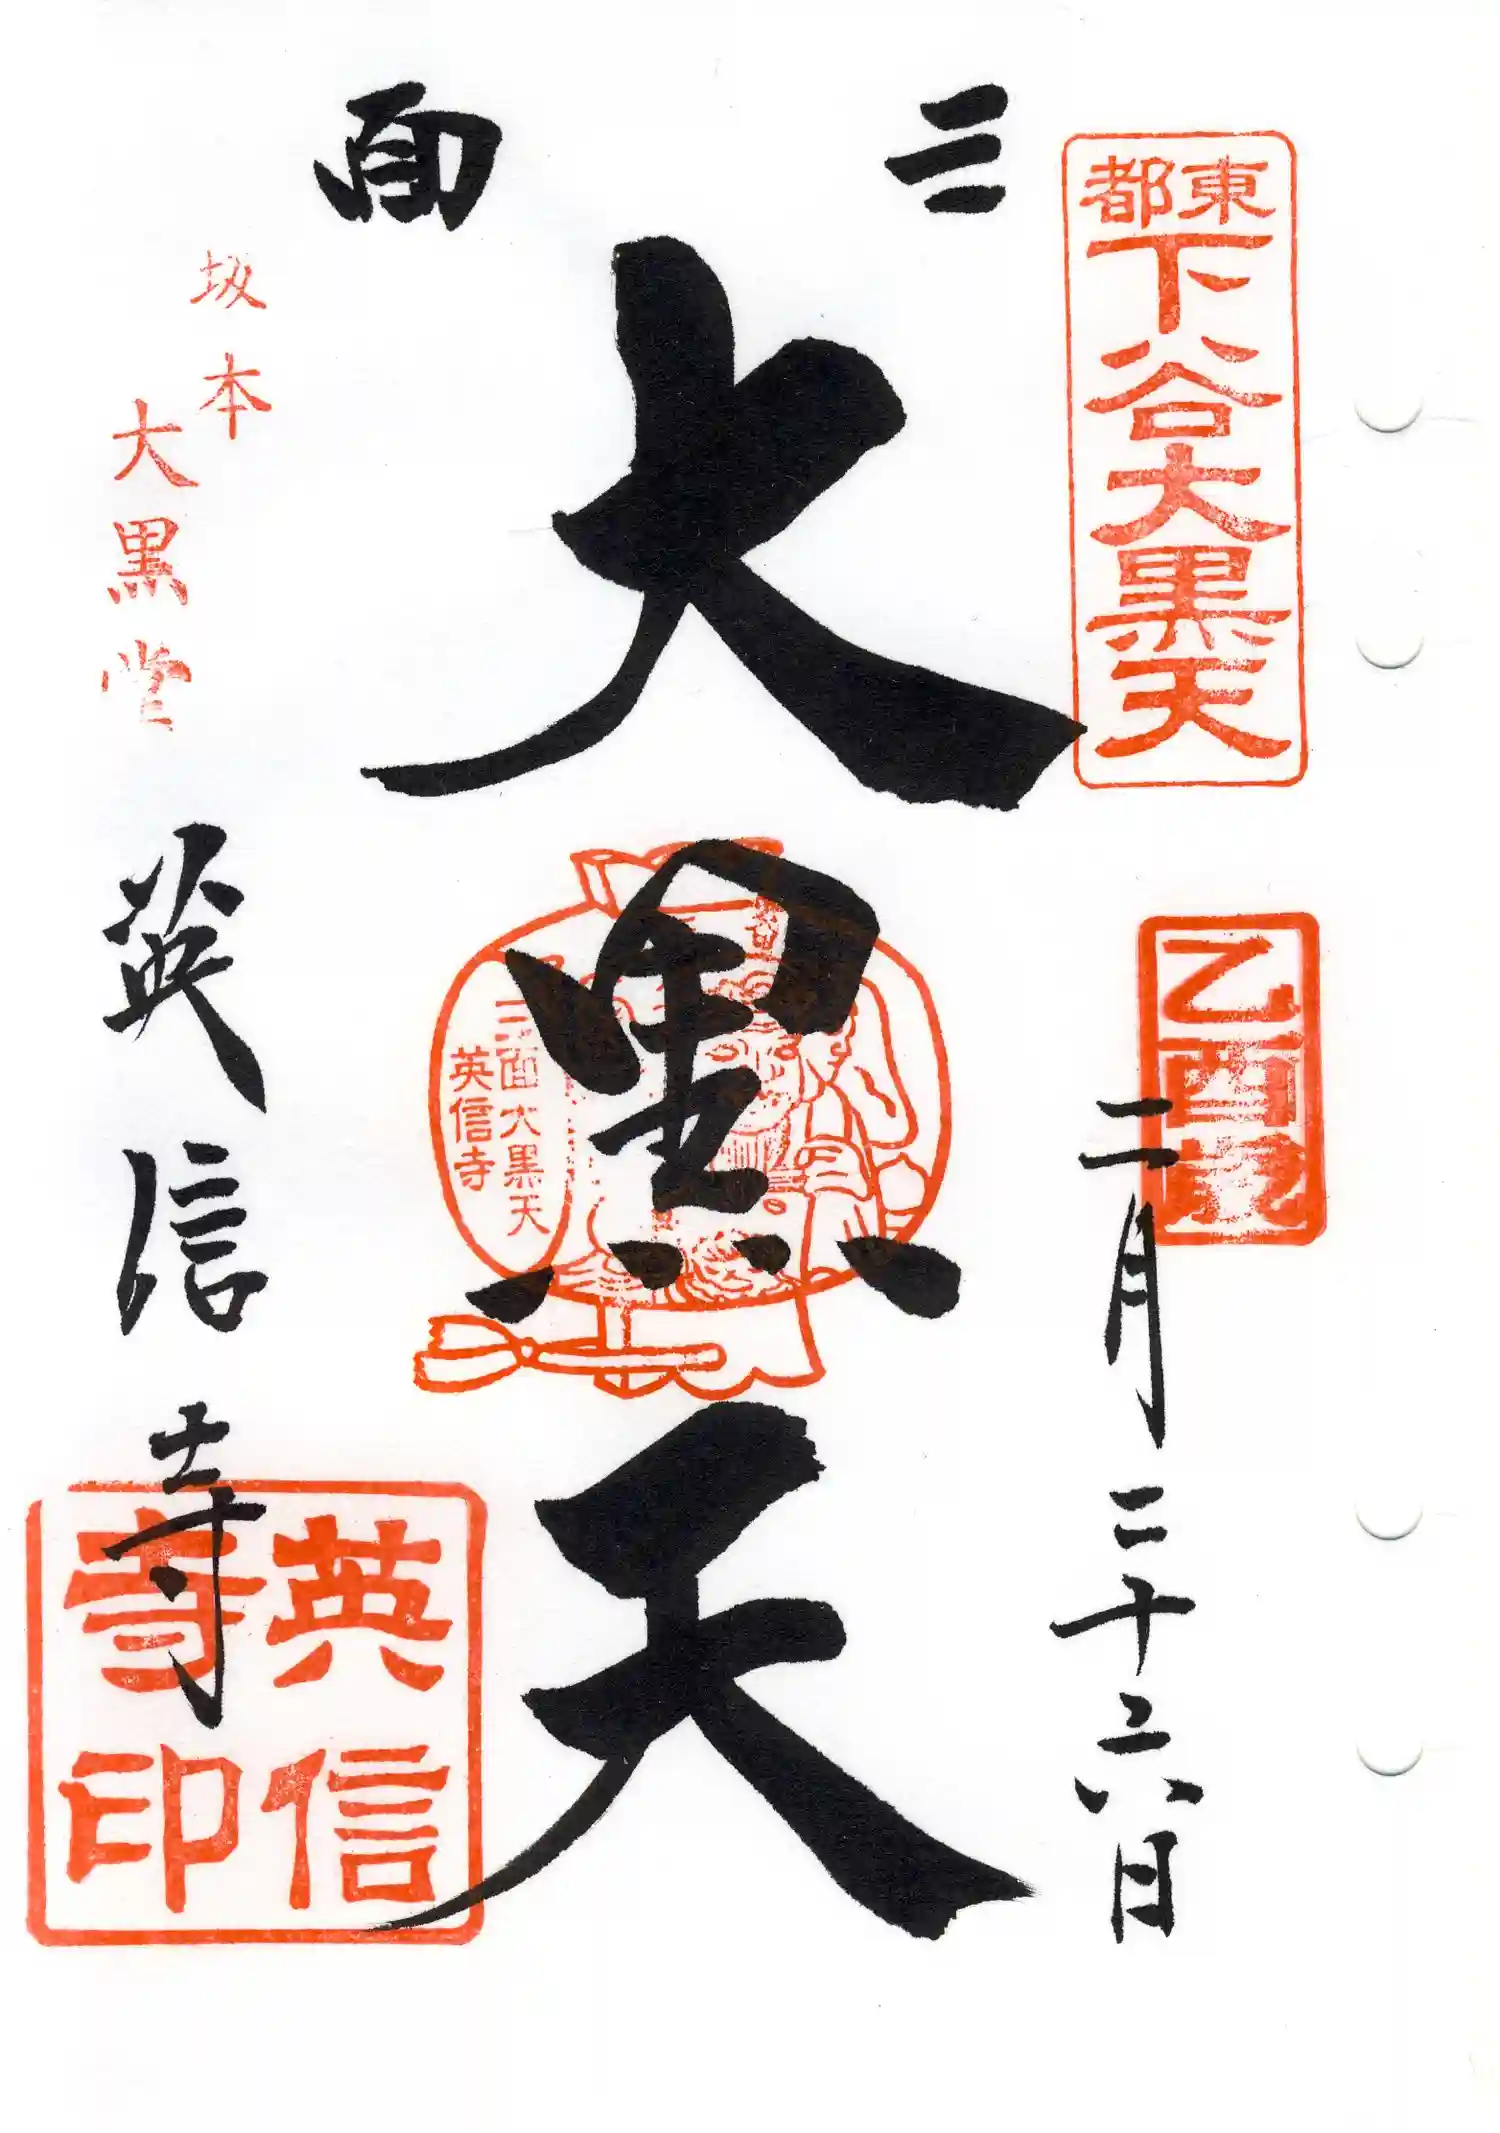 東都
下谷大黒天
乙酉
二月二十六日
三面
大黒天
三面大黒天
英信寺
坂本
大黒堂
英信寺
英信寺印